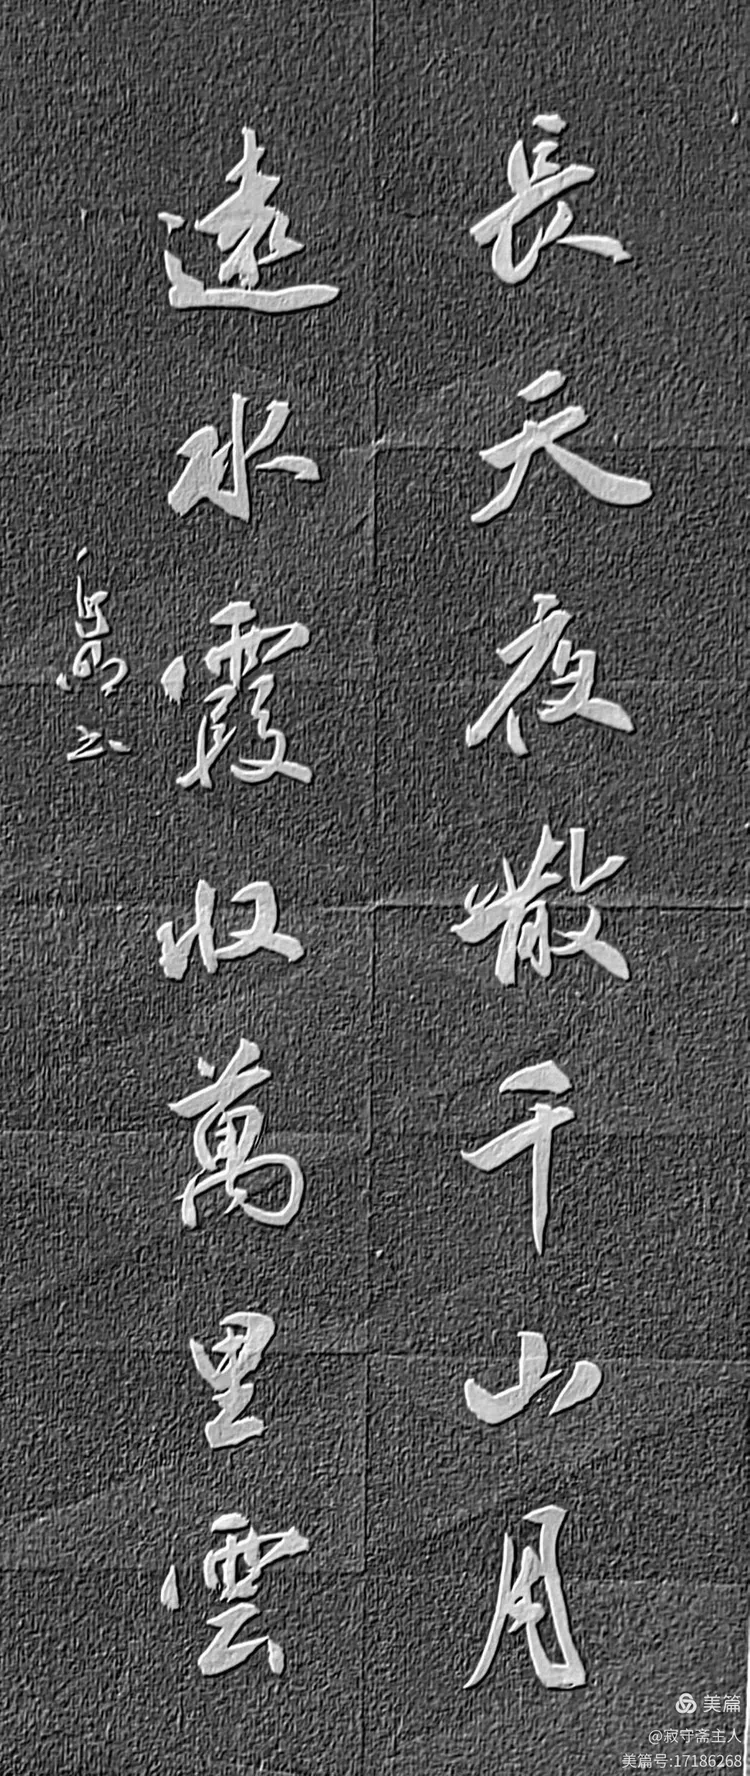 長天夜散千山月
遠水霞收萬里雲
美篇
@寂守斋主人
美篇号:17186268